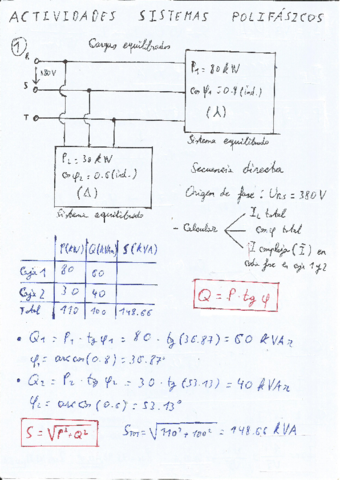 ACTIVIDADES SISTEMAS POLIFÁSICOS
① Cargas equilibradas
R
380V
S
T
P₁ = 80 kW
cos φ₁ = 0.8 (ind.)
(⅄)
Sistema equilibrado
P₂ = 30 kW
cos φ₂ = 0.6 (ind.)
(Δ)
Sistema equilibrado
Secuencia directa
Origen de fase: U_RS = 380V
- Calcular
I_L total
cos φ total
I complejas (I) en
cada fase en caja 1 y 2
P(kW) Q(kVAr) S(kVA)
Caja 1 80 60
Caja 2 30 40
Total 110 100 148.66
Q = P · tg φ
• Q₁ = P₁ · tg φ₁ = 80 · tg (36.87) = 60 kVAr
φ₁ = arc cos (0.8) = 36.87°
• Q₂ = P₂ · tg φ₂ = 30 · tg (53.13) = 40 kVAr
φ₂ = arc cos (0.6) = 53.13°
S = √P²+Q²
= √110² + 100² = 148.66 kVA